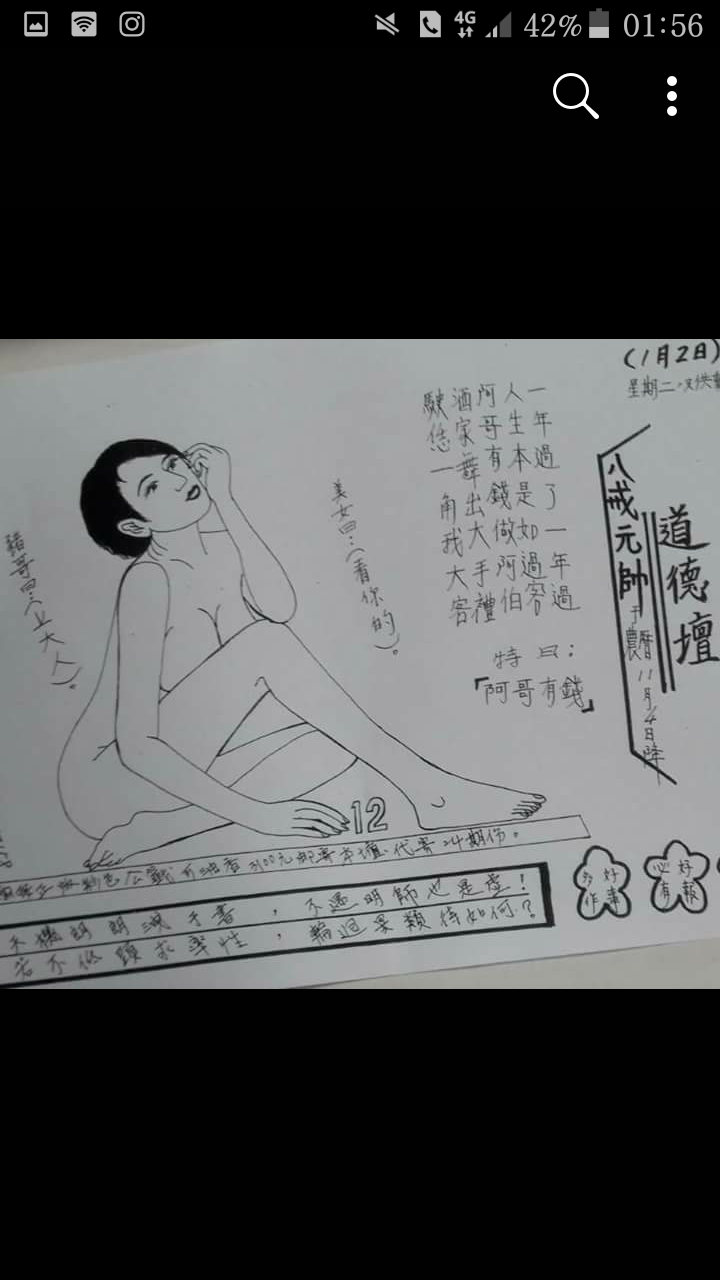 42% 01:56
4G
(1月2日)
星期二
道德壇
八戒元帥
于農曆11月4日降
一年過了一年過
人生本是如過客
阿哥有錢做阿伯
酒家舞出大手禮
駛恁一角我大客
特曰：
「阿哥有錢」
美女曰：(看你的)。
豬哥曰：(上大人)。
12
元郵寄本壇代寄24期份。
不遇明師也是虛！
若不低頭求率性，輪迴果類待如何？
多作好事
心有好報